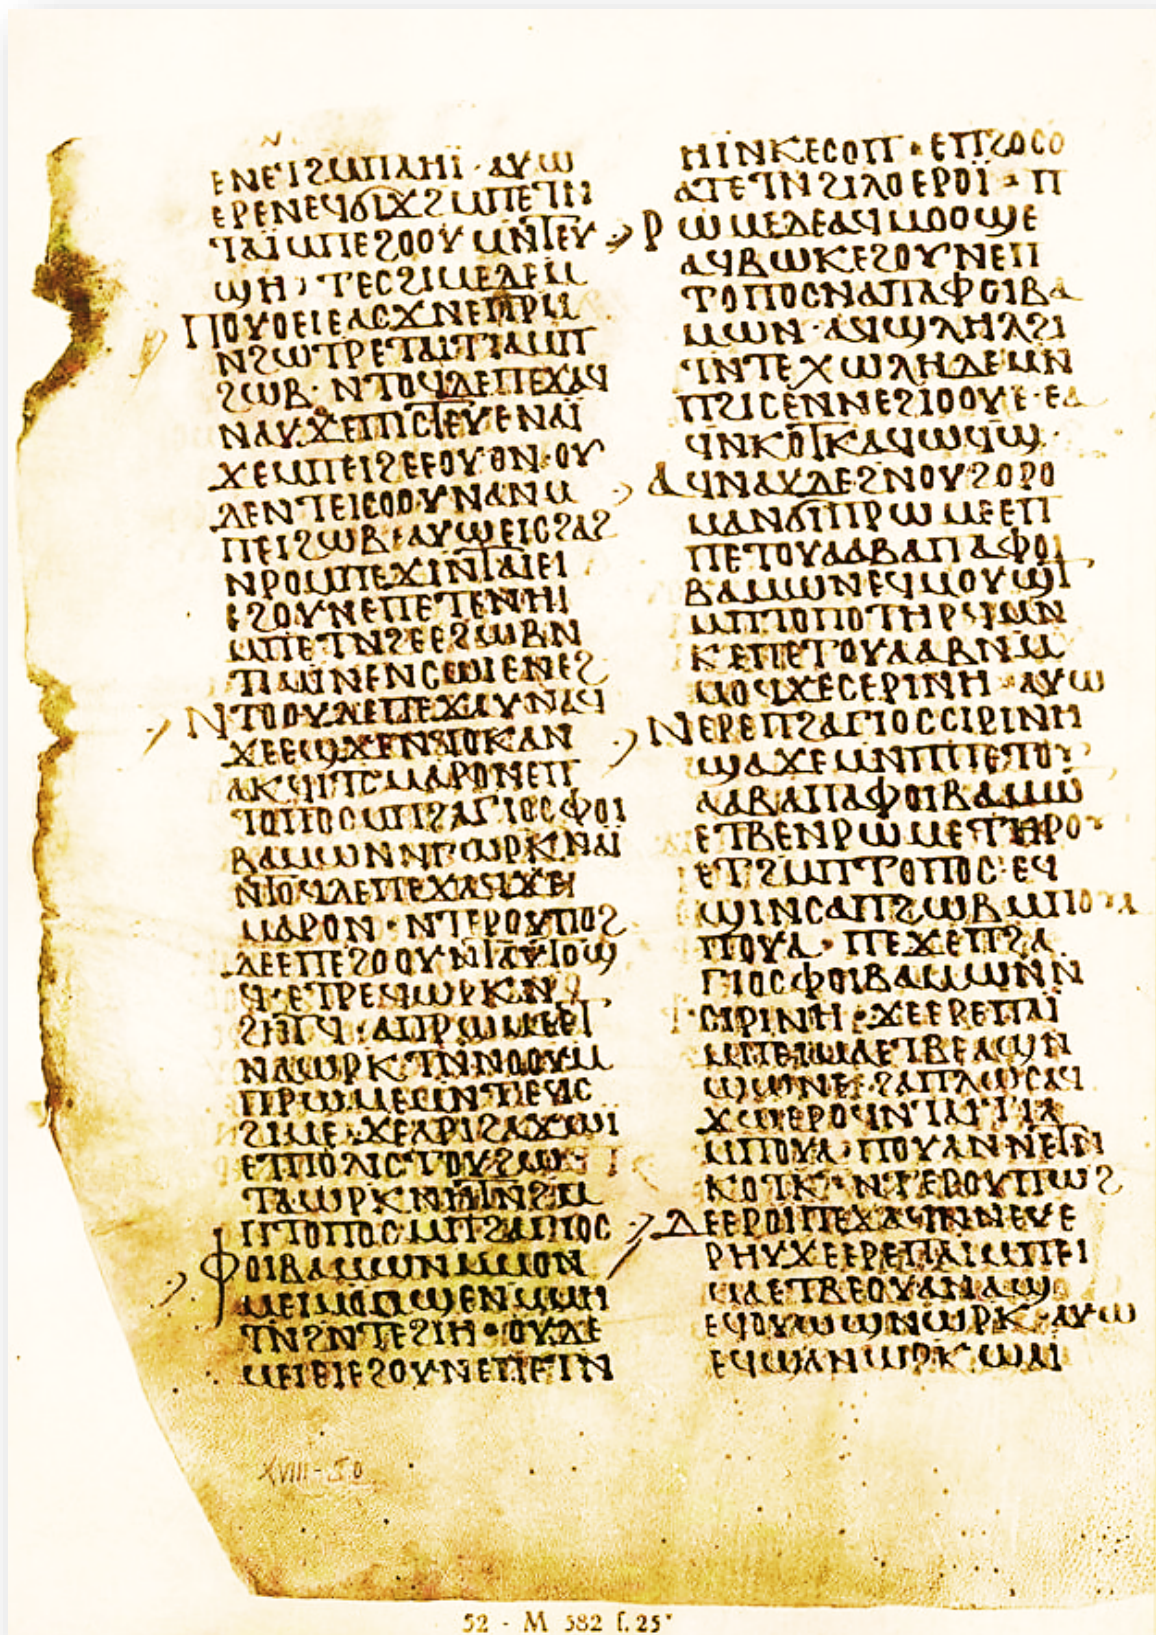 ⲉⲛⲉⲓϩⲙⲡⲁⲏⲓ · ⲁⲩⲱ
ⲉⲣⲉⲛⲉϥϭⲓϫϩⲙⲡⲉⲧⲛ
ⲧⲁⲓⲙⲡⲉϩⲟⲟⲩ ⲙⲛⲧⲉⲩ
ϣⲏ · ⲧⲉⲥϩⲓⲙⲉⲇⲉⲙ
ⲡⲟⲩⲟⲉⲓⲉⲁⲥϫⲛⲉⲡⲣⲙ
ⲛϩⲱⲧⲣⲉⲧⲁⲓⲧⲓⲁⲙⲡ
ϩⲱⲃ · ⲛⲧⲟϥⲇⲉⲡⲉϫⲁϥ
ⲛⲁⲩ ϫⲉⲡⲓⲥⲧⲉⲩⲉⲛⲁⲓ̈
ϫⲉⲙⲡⲉⲓϩⲉⲉⲟⲩⲟⲛ · ⲟⲩ
ⲇⲉⲛϯⲉⲓⲥⲟⲟⲩⲛⲁⲛⲙ
ⲡⲉⲓϩⲱⲃ · ⲁⲩⲱⲉⲓⲥϩⲁϩ
ⲛⲣⲟⲙⲡⲉϫⲓⲛⲧⲁⲓⲉⲓ
ⲉϩⲟⲩⲛⲉⲡⲉⲧⲛⲏⲓ
ⲙⲡⲉⲧⲛϩⲉⲉϩⲱⲃⲛ
ϯⲙⲓⲛⲉⲛⲥⲱⲓⲉⲛⲉϩ
ⲛⲧⲟⲟⲩⲇⲉⲡⲉϫⲁⲩⲛⲁϥ
ϫⲉⲉϣϫⲉⲛⲧⲟⲕⲁⲛ
ⲁⲕϥⲓⲧⲥⲙⲁⲣⲟⲛⲉⲡ
ⲧⲟⲡⲟⲥⲙⲡϩⲁⲅⲓⲟⲥⲫⲟⲓ
ⲃⲁⲙⲙⲱⲛⲛⲅⲱⲣⲕⲛⲁⲓ̈
ⲛⲧⲟϥⲇⲉⲡⲉϫⲁϥϫⲉ
ⲙⲁⲣⲟⲛ · ⲛⲧⲉⲣⲟⲩⲡⲱϩ
ⲇⲉⲉⲡⲉϩⲟⲟⲩⲛⲧⲁⲩⲧⲟϣ
ϥ · ⲉⲧⲣⲉϥⲱⲣⲕⲛ
ϩⲏⲧϥ · ⲁⲡⲣⲱⲙⲉⲉⲓ
ⲛⲁⲱⲣⲕ ⲧⲛⲛⲟⲟⲩⲙ
ⲡⲣⲱⲙⲉⲛⲧⲉϥⲥ
ϩⲓⲙⲉ · ϫⲉⲁⲣⲓϩⲁϫⲱⲓ
ⲉⲧⲡⲟⲗⲓⲥ
ⲧⲁⲱⲣⲕ ⲛⲏⲧⲛϩⲙ
ⲡⲧⲟⲡⲟⲥⲙⲡϩⲁⲅⲓⲟⲥ
ⲫⲟⲓⲃⲁⲙⲙⲱⲛⲙⲙⲟⲛ
ⲙⲉⲓⲙⲟⲟϣⲉⲛⲙⲙⲏ
ⲧⲛϩⲛⲧⲉϩⲓⲏ · ⲟⲩⲇⲉ
ⲙⲉⲓⲉⲓⲉϩⲟⲩⲛⲉⲡⲉⲧⲛ
ⲏⲓ̈ⲛⲕⲉⲥⲟⲡ · ⲉⲡϩⲟⲥⲟ
ⲁⲧⲉⲧⲛϩⲓⲗⲁⲉⲣⲟⲓ̈ · ⲡ
ⲣⲱⲙⲉⲇⲉⲁϥⲙⲟⲟϣⲉ
ⲁϥⲃⲱⲕⲉϩⲟⲩⲛⲉⲡ
ⲧⲟⲡⲟⲥⲛⲁⲡⲁⲫⲟⲓⲃⲁ
ⲙⲙⲱⲛ · ⲁϥϣⲗⲏⲗϩⲓ
ϥⲛⲧⲉⲭⲱⲗⲏⲇⲉⲙⲛ
ⲡϩⲓⲥⲉⲛⲛⲉϩⲓⲟⲟⲩⲉ · ⲉⲁ
ϥⲛⲕⲟⲧⲕⲁϥⲱϥϣ ·
ⲁϥⲛⲁⲩⲇⲉϩⲛⲟⲩϩⲟⲣⲟ
ⲙⲁⲛϭⲓⲡⲣⲱⲙⲉⲉⲡ
ⲡⲉⲧⲟⲩⲁⲁⲃⲁⲡⲁⲫⲟⲓ
ⲃⲁⲙⲙⲱⲛⲉϥⲙⲟⲩϣⲧ
ⲙⲡⲧⲟⲡⲟⲧⲏⲣϥⲙⲛ
ⲕⲉⲡⲉⲧⲟⲩⲁⲁⲃⲛⲙ
ⲙⲟϥϫⲉⲥⲉⲣⲓⲛⲏ · ⲁⲩⲱ
ⲛⲉⲣⲉⲡϩⲁⲅⲓⲟⲥⲥⲓⲣⲓⲛⲏ
ϣⲁϫⲉⲙⲛⲡⲡⲉⲧⲟⲩ
ⲁⲁⲃⲁⲡⲁⲫⲟⲓⲃⲁⲙⲙⲱ
ⲉⲧⲃⲉⲛⲣⲱⲙⲉⲧⲏⲣⲟⲩ
ⲉⲧϩⲙⲡⲧⲟⲡⲟⲥ · ⲉϥ
ϣⲓⲛⲥⲁⲡϩⲱⲃⲙⲡⲟⲩⲁ
ⲡⲟⲩⲁ · ⲡⲉϫⲉⲡϩⲁ
ⲅⲓⲟⲥⲫⲟⲓⲃⲁⲙⲙⲱⲛⲛ
ⲥⲓⲣⲓⲛⲏ · ϫⲉⲉⲣⲉⲡⲁⲓ̈
ⲙⲡⲉⲓⲙⲁⲉⲧⲃⲉⲁϣⲛ
ϣⲙⲛⲉ · ϩⲁⲡⲗⲱⲥⲁϥ
ϫⲱⲉⲣⲟϥⲛⲧⲁⲓⲧⲓⲁ
ⲙⲡⲟⲩⲁ · ⲡⲟⲩⲁⲛⲛⲉⲧⲛ
ⲕⲟⲧⲕ · ⲛⲧⲉⲣⲟⲩⲡⲱϩ
ⲇⲉⲉⲣⲟⲓⲡⲉϫⲁϥⲛⲛⲉⲩⲉ
ⲣⲏⲩϫⲉⲉⲣⲉⲡⲁⲓⲙⲡⲉⲓ
ⲙⲁⲉⲧⲃⲉⲟⲩⲁⲛⲁϣ
ⲉϥⲟⲩⲱϣⲛⲱⲣⲕ · ⲁⲩⲱ
ⲉϥϣⲁⲛⲱⲣⲕ ϣⲁⲓ
XVIII-50
52 - M 582 f. 25ᵛ